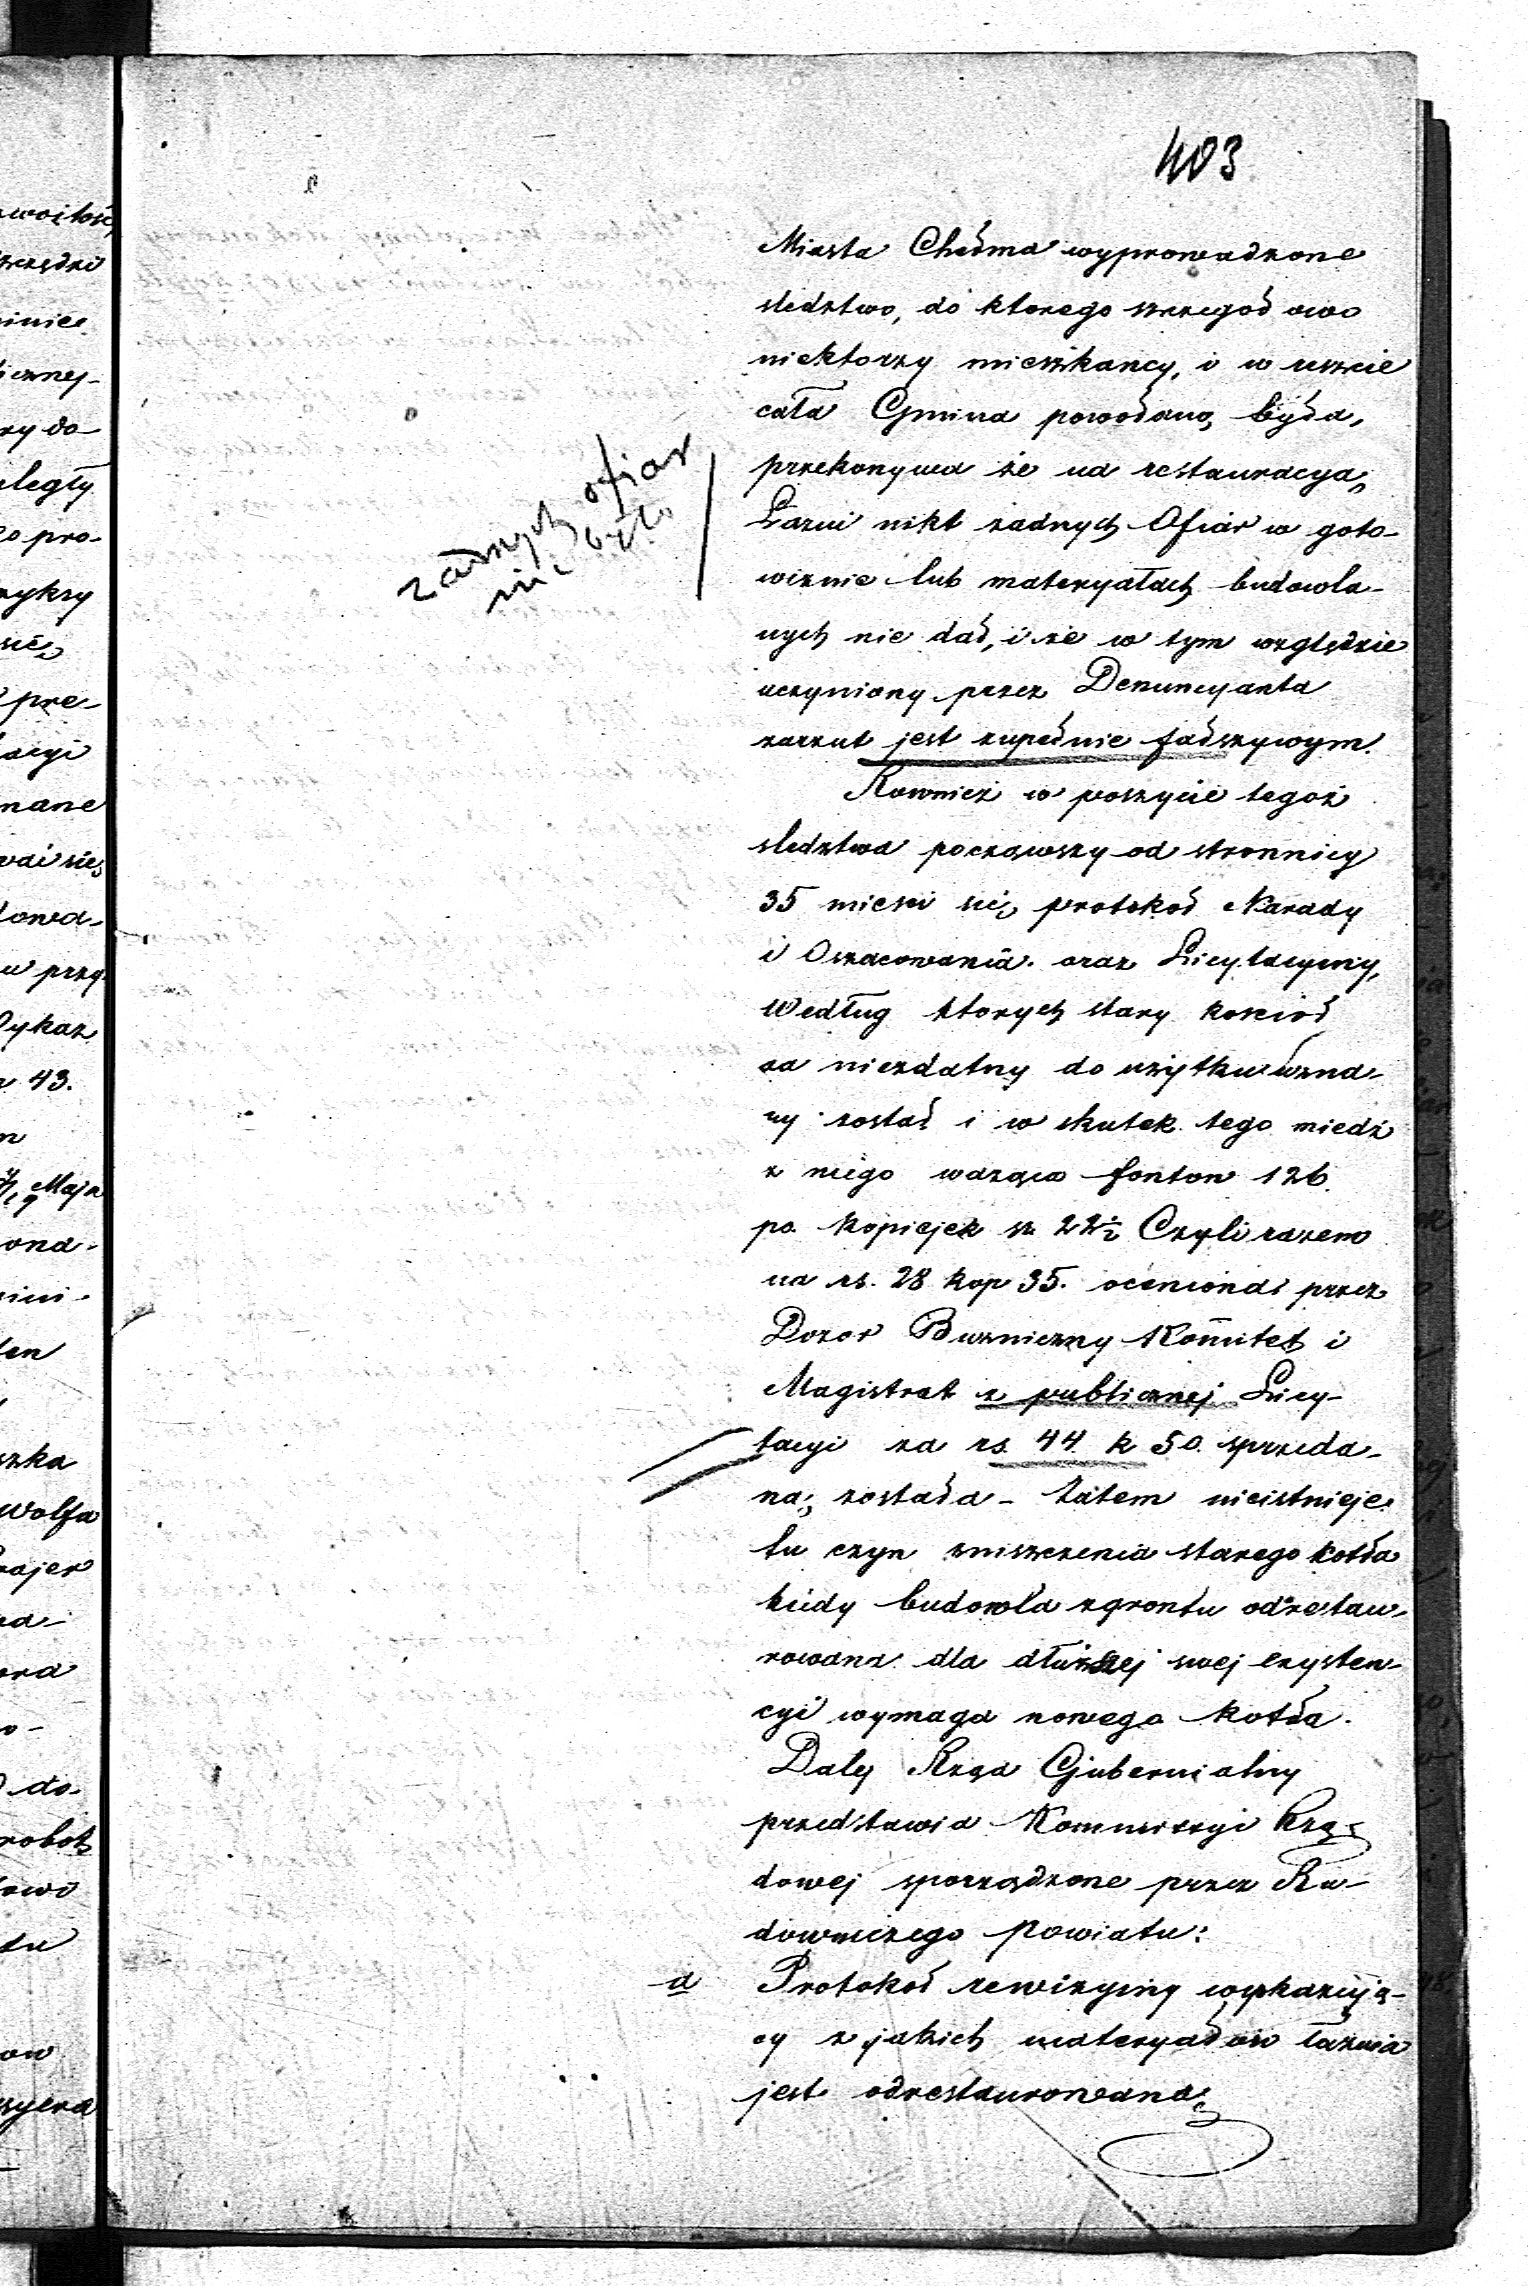 403
Miasta Chełma wyprowadzone
sledztwo, do ktorego szczegół owo
niektorzy mieszkancy, i w reszcie
cała Gmina powołano, była,
przekonywa że na restauracyą,
Łazni nikt żadnych Ofiar w goto-
wiznie lub materyałach budowla-
nych nie dał, i że w tym względzie
uczyniony przez Denuncyanta
zarzut jest zupełnie fałszywym.
żadnych ofiar
nie było
Rownież w poszycie tegoż
sledztwa począwszy od stronnicy
35 miesci się, protokół Narady
i Oszacowania oraz Licytacyiny,
Według ktorych stary kocioł
za niezdatny do użytku uzna-
ny został i w skutek tego miedź
z niego ważąca fontow 126
po kopiejek sr. 22½ Czyli razem
na rs. 28 kop 35. oceniona przez
Dozor Bużniczny Komitet i
Magistrat z publicznej Licy-
tacyi za rs. 44 k 50. sprzeda-
ną, została - Zatem nieistnieje
tu czyn zniszczenia starego kotła
kiedy budowla zgrontu odrestau-
rowana dla dłuższej swej exysten-
cyi wymaga nowego kotła.
Daley Rząd Gubernialny
przedstawia Kommissyi Rzą-
dowej sporządzone przez Bu-
downiczego Powiatu:
a Protokół rewizyiny wykazują-
cy z jakich materyałów łaznia
jest odrestaurowaną,